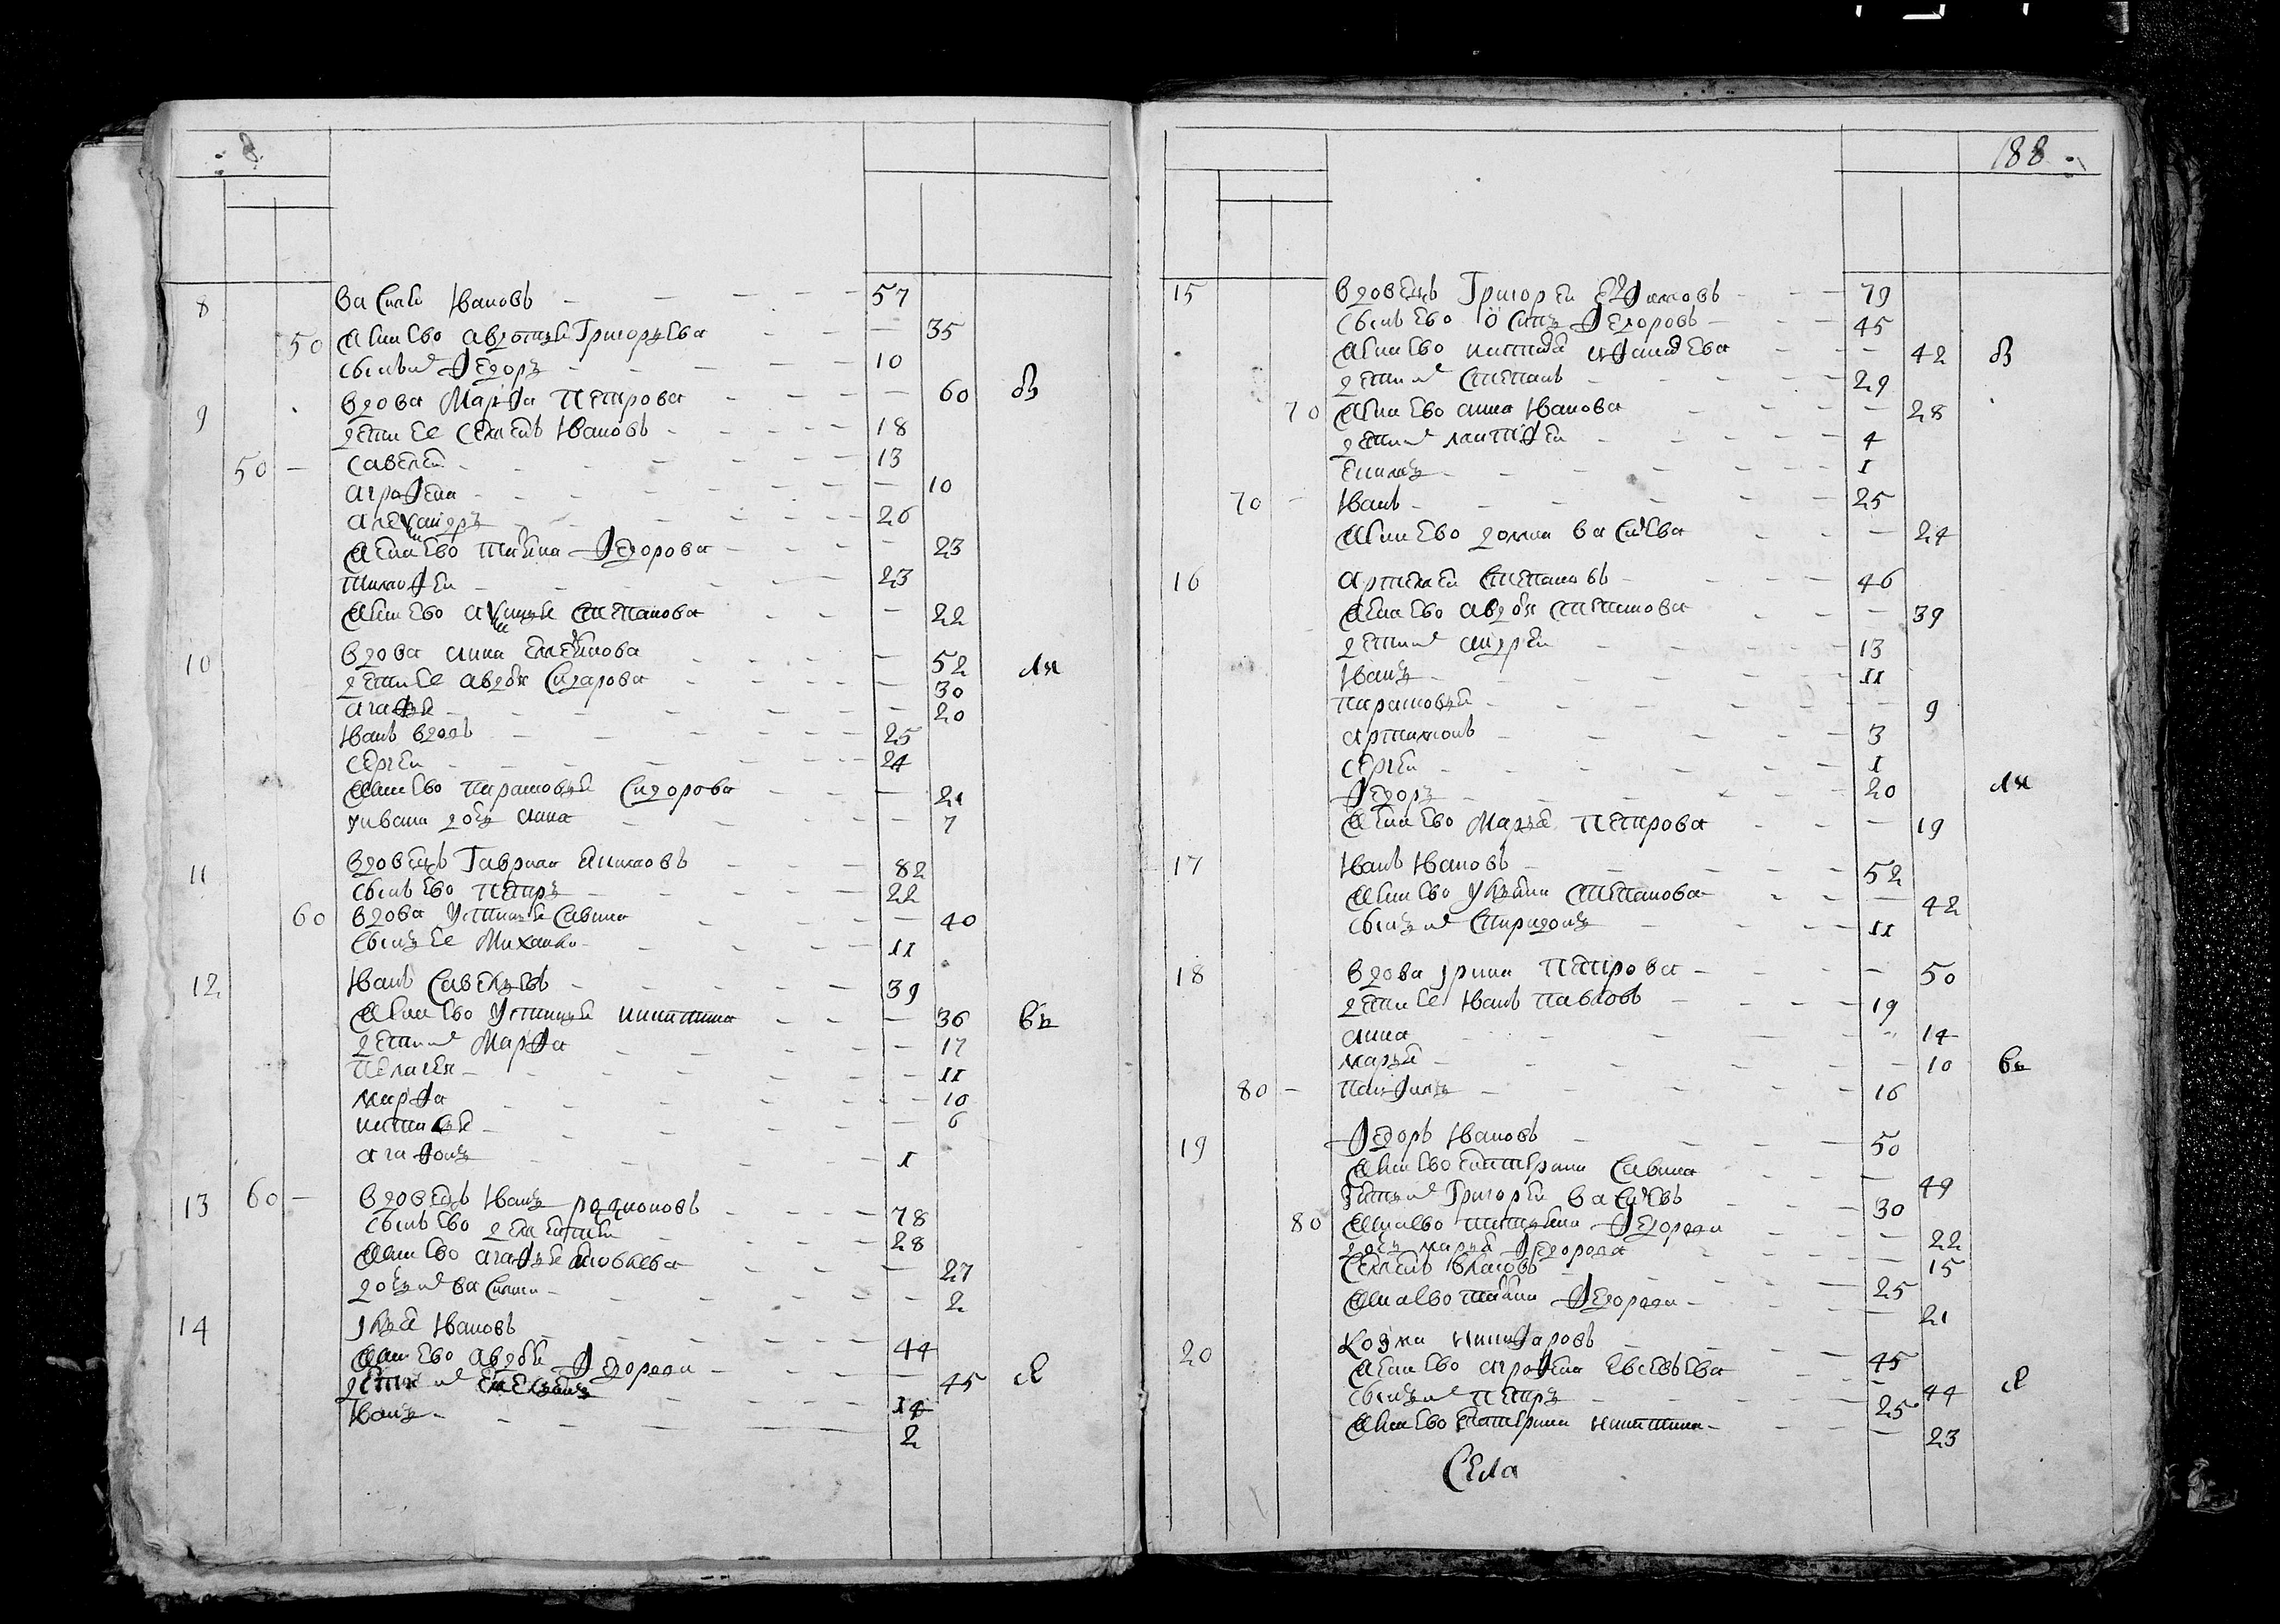 8 Василей Ивановъ 57
50 Жена ево Авдотья Григорьева 35
Сынъ их Федоръ 10
9 Вдова Марфа Петрова 60 бы
Дети ее Семенъ Ивановъ 18
50 Савелей 13
Аграфена 10
Александръ 26
Жена ево Татьяна Федорова 23
Тимофей 23
Жена ево Аксинья Степанова 22
10 Вдова Анна Емельянова 52 ли
Дети ее Авдотья Сидарова 30
Агафья 20
Иванъ вдовъ 25
Сергей 24
Жена ево Парасковья Сидорова 21
у Ивана дочь Анна 7
11 Вдовецъ Гаврила 82
Сынъ ево Петръ 22
60 Вдова Устинья Савина 40
Сынъ ее Михайло 11
12 Иванъ Савельевъ 39
Жена ево Устинья Никитина 36 въ
Дети их Марфа 17
Пелагея 11
Марфа 10
6
Агафонъ 1
13 60 Вдовецъ Иванъ Родионовъ 78
Сынъ ево Дементей 28
Жена ево Агафья 27
Дочь их Василиса 2
14 Илья Ивановъ 44
Жена ево Авдотья Федорова 45
Дети их Емельянъ 14
Иванъ 2
188
15 Вдовецъ Григорей Ефимовъ 79
Сынъ ево Осипъ Федоровъ 45
Жена ево 42 бы
Дети их Степанъ 29
70 Жена ево Анна Иванова 28
Дети их 4
1
70 Иванъ 25
Жена ево Домна Васильева 24
16 Артемей Степановъ 46
Жена ево Авдотья Степанова 39
Дети их Андрей 13
Иванъ 11
Парасковья 9
Артамонъ 3
Сергей 1
Федоръ 20 ли
Жена ево Марья Петрова 19
17 Иванъ Ивановъ 52
Жена ево Ульяна Степанова 42
Сынъ их Спиридонъ 11
18 Вдова Ирина Петрова 50
Дети ее Иванъ Павловъ 19
Анна 14
Марья 10 въ
80 Панфилъ 16
19 Федоръ Ивановъ 50
Жена ево Катерина Савина 49
Григорей Васильевъ 30
80 Жена ево Татьяна Федорова 22
Дочь Марья Федорова 15
Семенъ Власовъ 25
Жена ево Татьяна Федорова 21
20 Козма Никифаровъ 45
Жена ево Аграфена Евсевьева 44
Сынъ их Петръ 25
Жена ево Катерина Никитина 23
Села